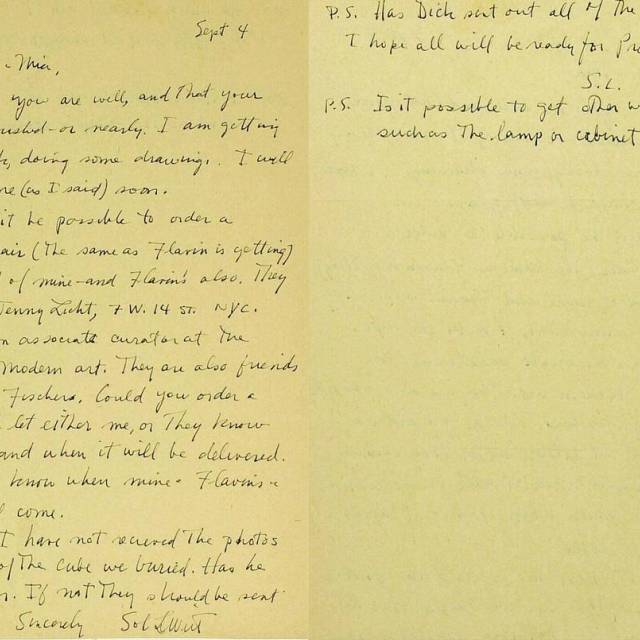 Sept 4
Mia,
you are well, and that your
or nearly. I am getting
doing some drawings. I will
(as I said) soon.
it be possible to order a
(the same as Flavin is getting)
of mine - and Flavin's also. They
Jenny Licht, 7 W. 14 St. NYC.
associate curator at the
Modern art. They are also friends
Fischers. Could you order a
let either me, or They know
and when it will be delivered.
know when mine - Flavin's -
come.
I have not recieved the photos
of the cube we buried. Has he
If not they should be sent
Sincerely Sol LeWitt
P.S. Has Dick sent out all of the
I hope all will be ready for
S.L.
P.S. Is it possible to get other
such as the lamp or cabinet